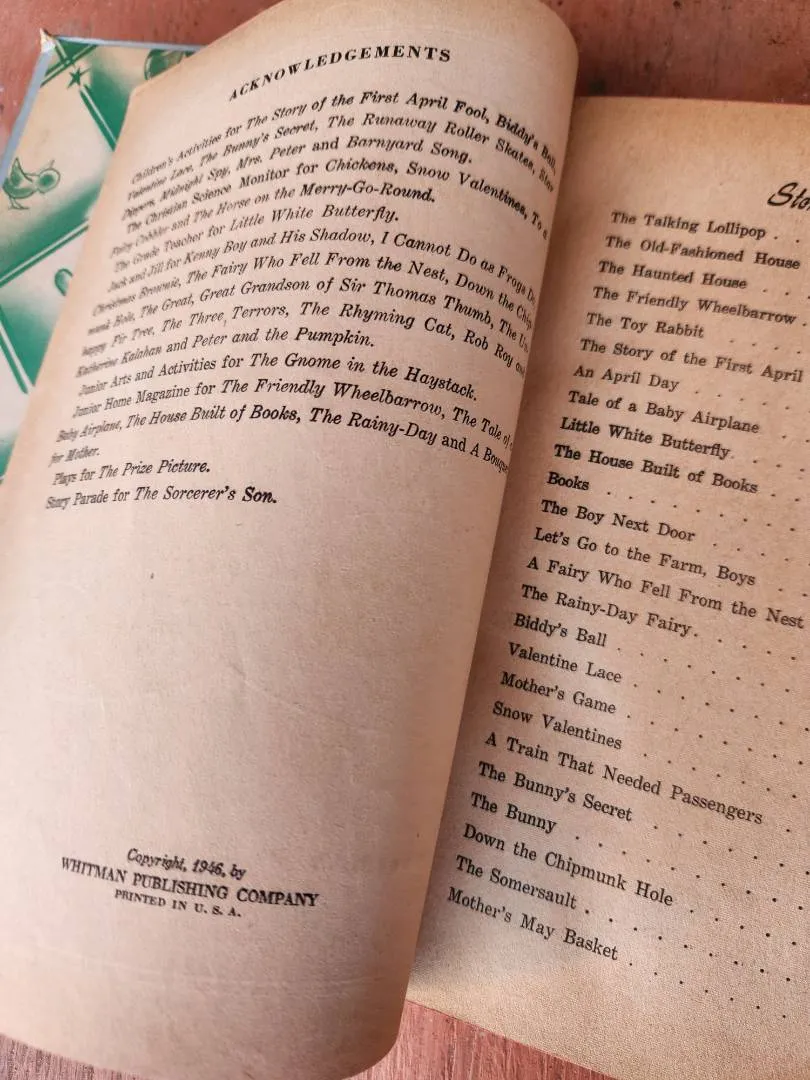 ACKNOWLEDGEMENTS
Children's Activities for The Story of the First April Fool, Biddy's Ball,
Valentine Lace, The Bunny's Secret, The Runaway Roller Skates,
Dippers, Midnight Spy, Mrs. Peter and Barnyard Song.
The Christian Science Monitor for Chickens, Snow Valentines, To a
Cobbler and The Horse on the Merry-Go-Round.
The Grade Teacher for Little White Butterfly.
Jack and Jill for Kenny Boy and His Shadow, I Cannot Do as Frogs Do,
Christmas Brownie, The Fairy Who Fell From the Nest, Down the Chip-
munk Hole, The Great, Great Grandson of Sir Thomas Thumb, The Un-
happy Fir Tree, The Three Terrors, The Rhyming Cat, Rob Roy and
Katherine Kalahan and Peter and the Pumpkin.
Junior Arts and Activities for The Gnome in the Haystack.
Junior Home Magazine for The Friendly Wheelbarrow, The Tale of a
Baby Airplane, The House Built of Books, The Rainy-Day and A Bouquet
for Mother.
Plays for The Prize Picture.
Story Parade for The Sorcerer's Son.
Copyright, 1946, by
WHITMAN PUBLISHING COMPANY
PRINTED IN U. S. A.
Sto
The Talking Lollipop . .
The Old-Fashioned House
The Haunted House . . .
The Friendly Wheelbarrow .
The Toy Rabbit . . . .
The Story of the First April
An April Day . . . . .
Tale of a Baby Airplane . .
Little White Butterfly. . . .
The House Built of Books . .
Books . . . . . . .
The Boy Next Door . . . .
Let's Go to the Farm, Boys . .
A Fairy Who Fell From the Nest
The Rainy-Day Fairy. . . . .
Biddy's Ball . . . . . . .
Valentine Lace . . . . . .
Mother's Game . . . . . .
Snow Valentines . . . . . .
A Train That Needed Passengers .
The Bunny's Secret . . . . .
The Bunny . . . . . . .
Down the Chipmunk Hole . . . .
The Somersault . . . . . . .
Mother's May Basket . . . . .